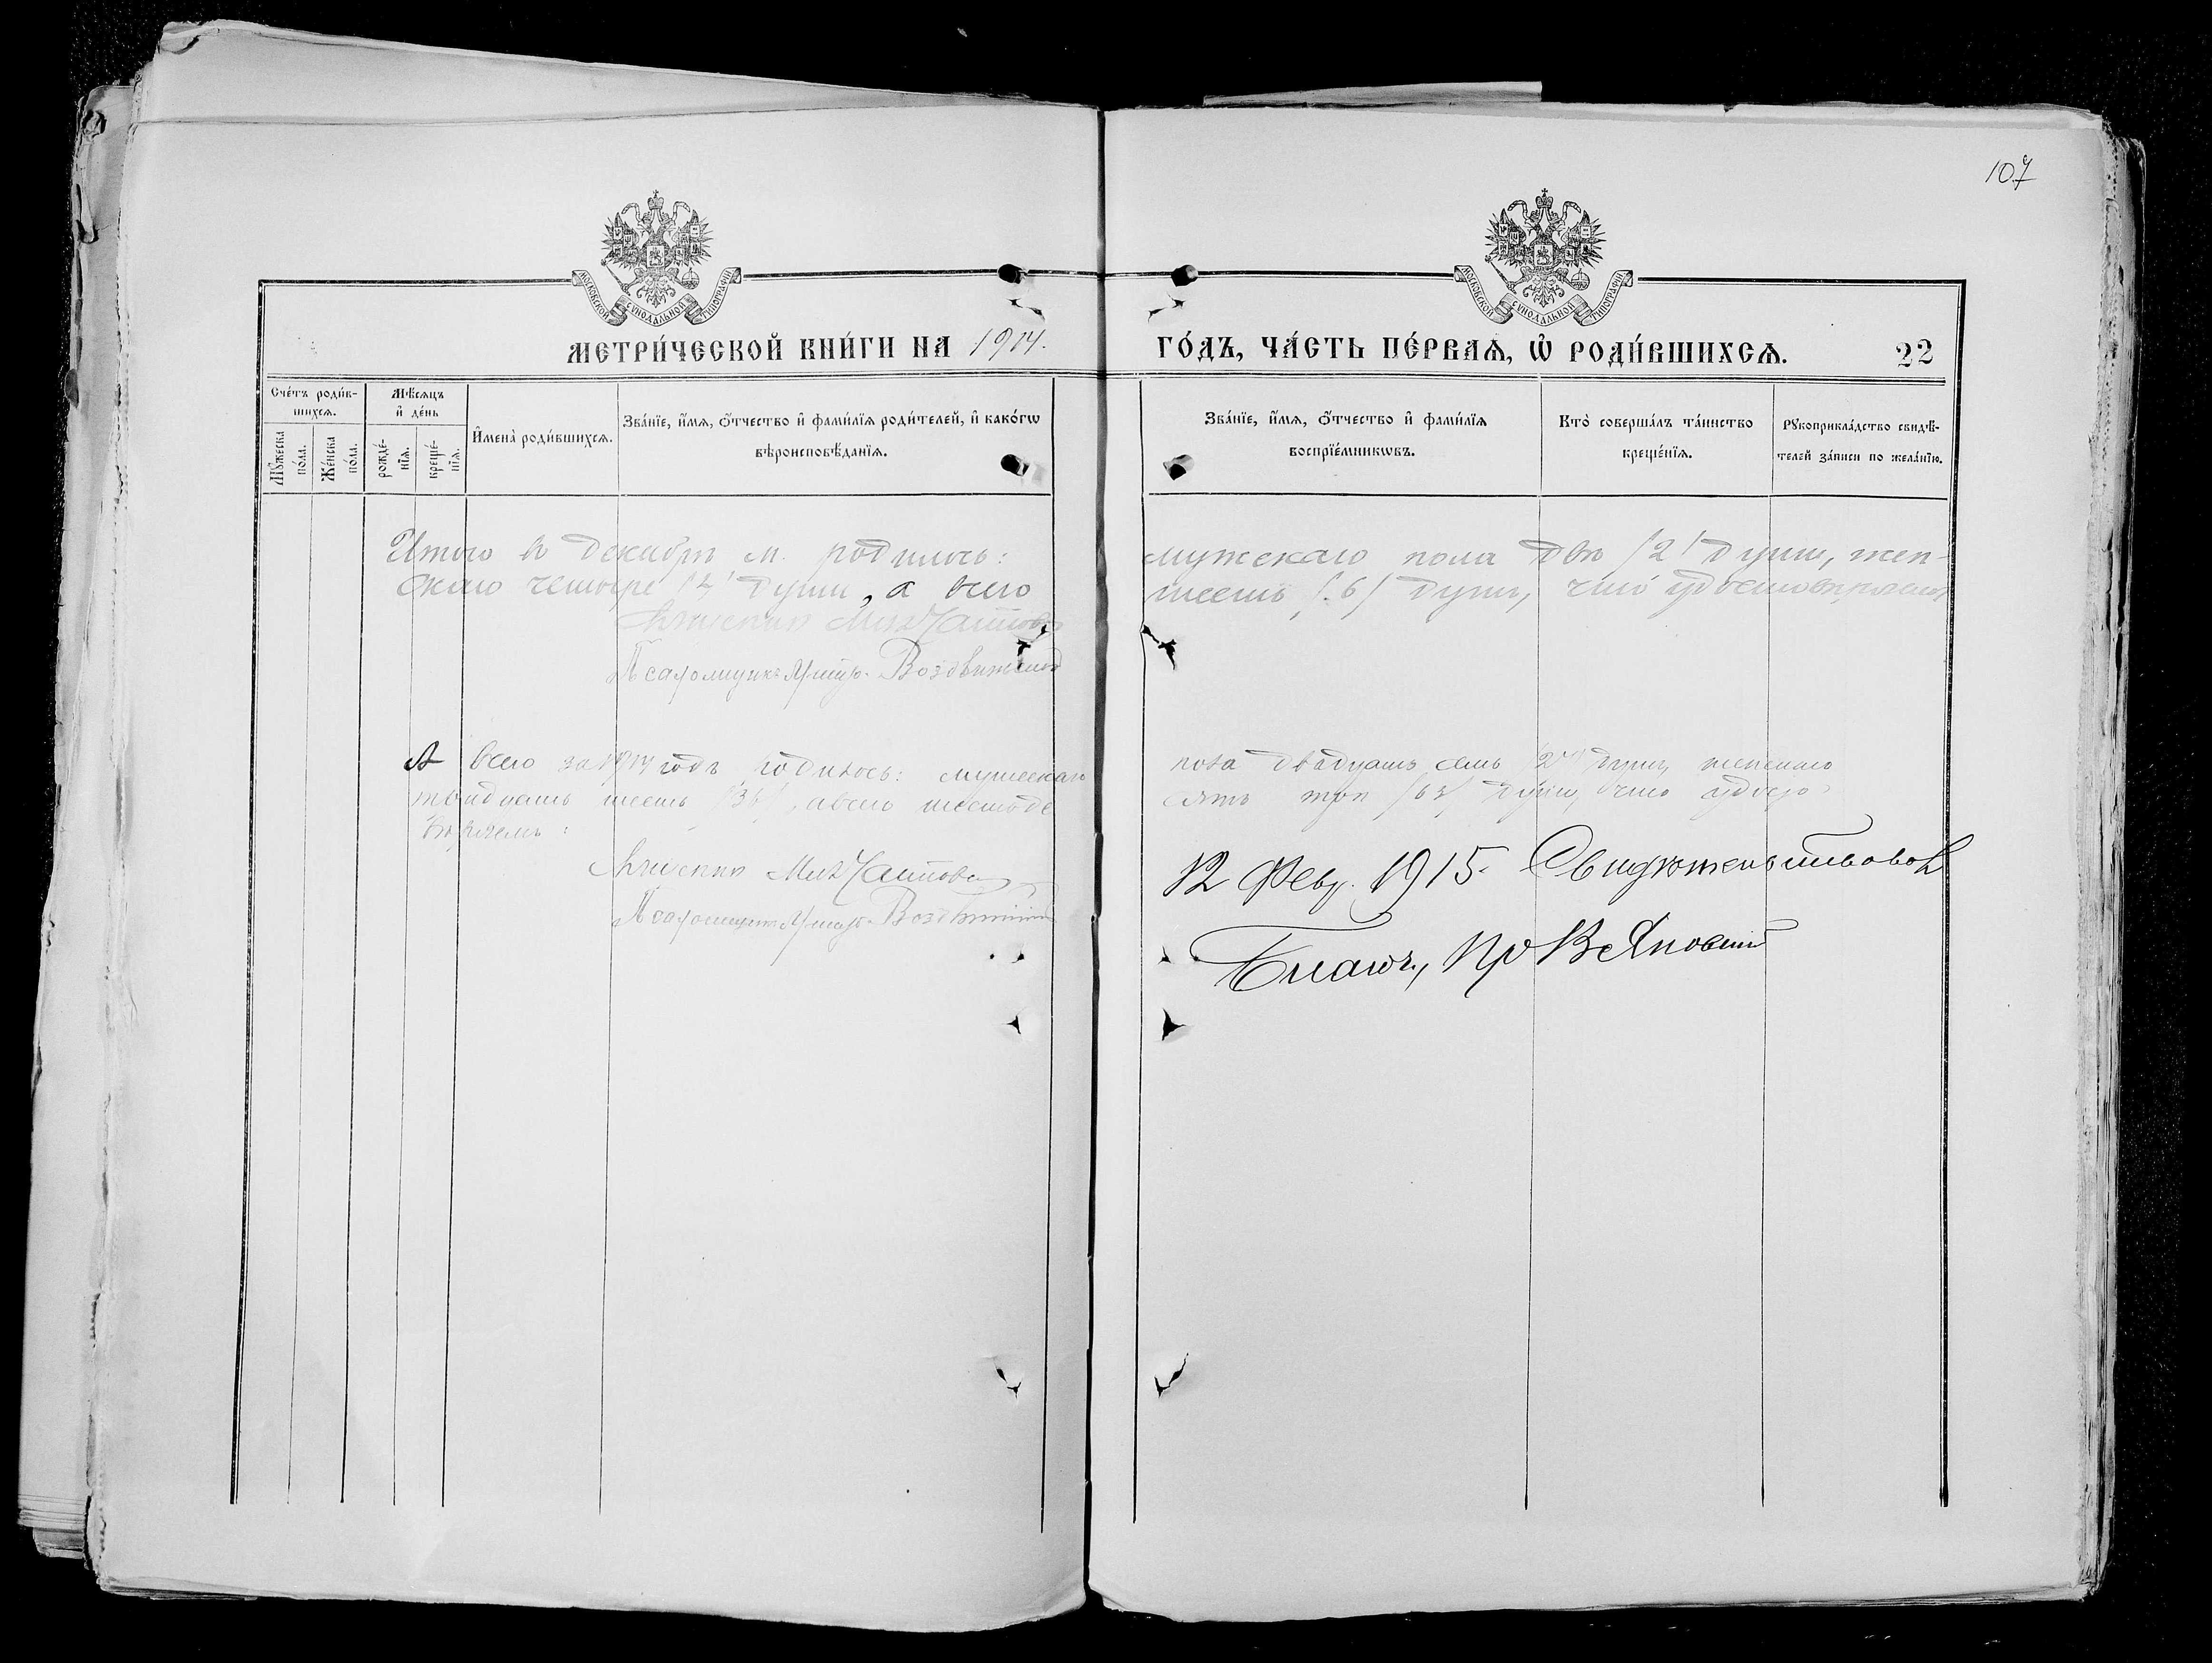 107
МОСКОВСКОЙ СѴНОДАЛЬНОЙ ТИПОГРАФІИ
МОСКОВСКОЙ СѴНОДАЛЬНОЙ ТИПОГРАФІИ
МЕТРИ́ЧЕСКОЙ КНИ́ГИ НА 1914.
ГО́ДЪ, ЧА́СТЬ ПЕ́РВАѦ, Ѡ҆ РОДИ́ВШИХСѦ. 22
Сче́тъ роди́в-
шихсѧ.
Мꙋ́жеска
по́ла.
Же́нска
по́ла.
Мѣ́сѧцъ
и҆ де́нь
рожде́-
нїѧ.
креще́-
нїѧ.
И҆мена̀ роди́вшихсѧ.
Зва́нїе, и҆́мѧ, ѻ҆́тчество и҆ фами́лїѧ роди́телей, и҆ како́гѡ
вѣроисповѣ́данїѧ.
Зва́нїе, и҆́мѧ, ѻ҆́тчество и҆ фами́лїѧ
воспрїе́мникѡвъ.
Кто̀ соверша́лъ та́инство
креще́нїѧ.
Рꙋкоприкла́дство свидѣ́-
телей за́писи по жела́нїю.
Итого въ декабрѣ м. родилось: мужскаго пола двѣ /2/ души, жен-
скаго четыре /4/ души, а всего шесть /6/ душъ, что удостовѣряемъ
Священникъ
Псаломщикъ Воздвиженскій
А всего за 1914 годъ родилось: мужескаго пола двадцать семь /27/ душъ, женскаго
тридцать шесть /36/, а всего шестьде
сятъ три /63/ души, что удосто
вѣряемъ:
Священникъ
Псаломщикъ Воздвиженскій
12 Февр. 1915. Свидѣтельствовалъ
Благоч.,